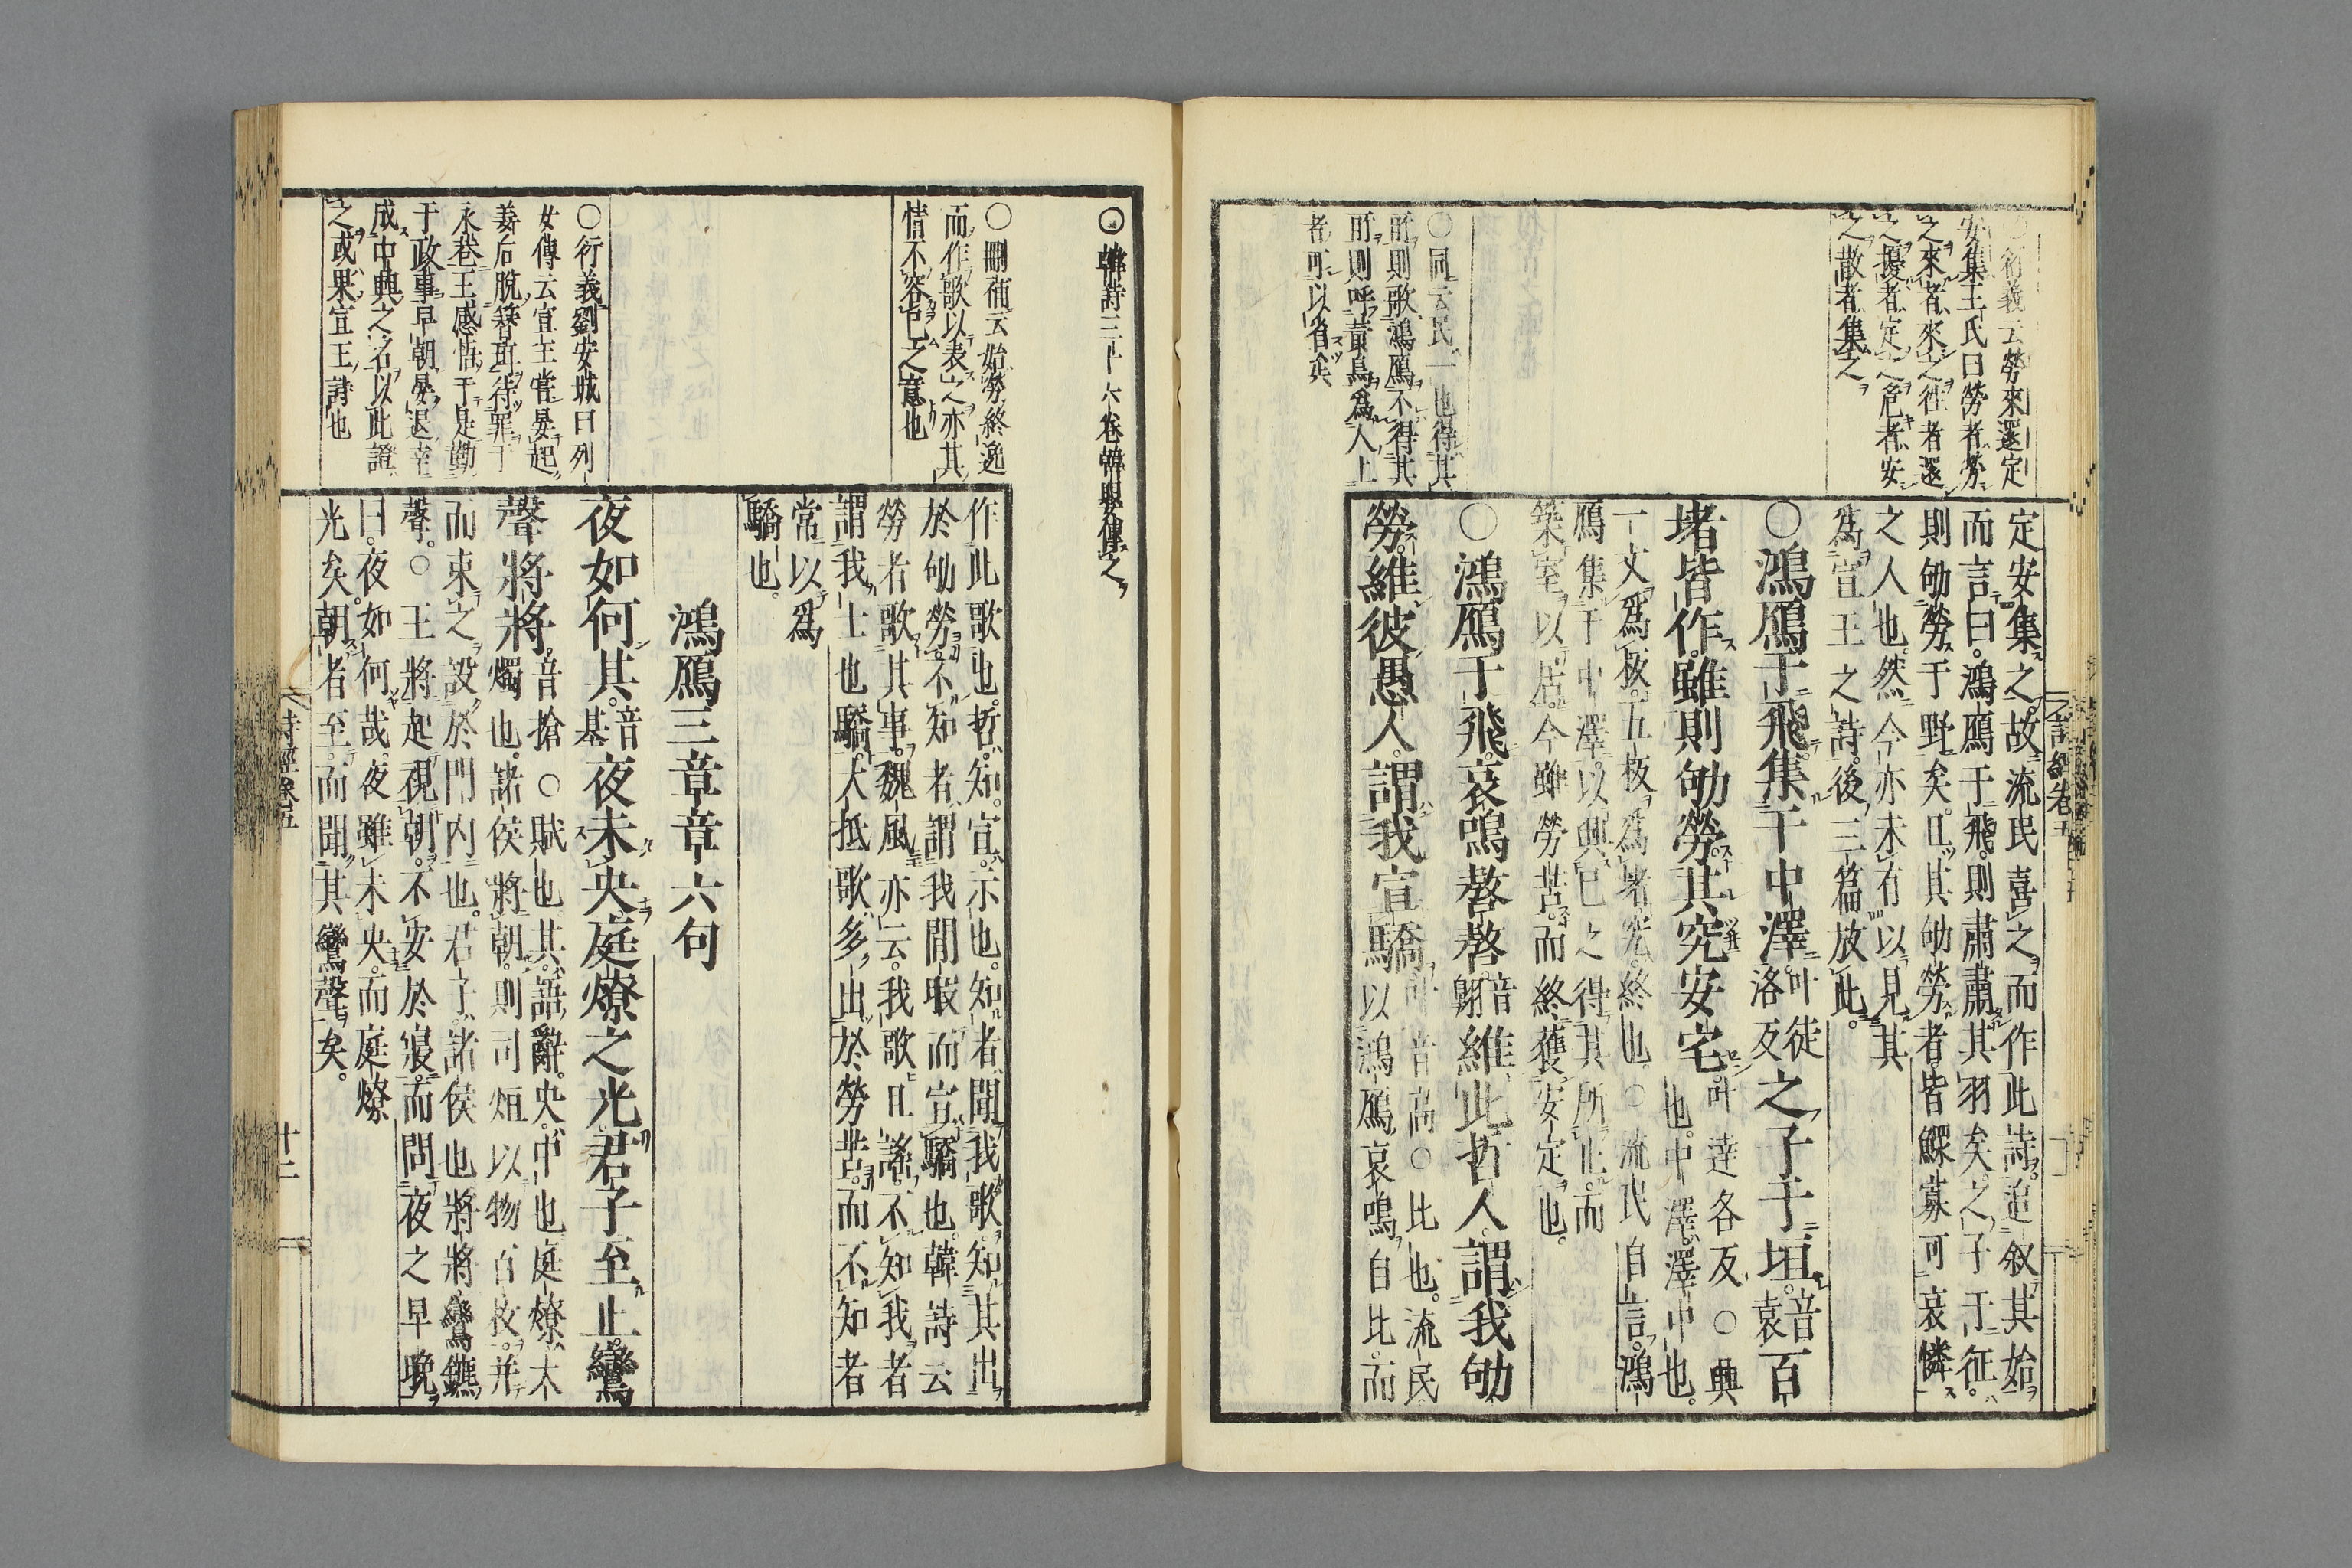 ○衍義云勞來還定
安集王氏曰勞者勞
之來者來之徃者還
之擾者定之危者安
之散者集之
○同云民一也得其
所則歌鴻鴈不得其
所則呼黃鳥爲人上
者可以省矣
定安集之。故流民喜之而作此詩。追叙其始
而言曰。鴻鴈于飛。則肅肅其羽矣。之子于征。
則劬勞于野矣。且其劬勞者。皆鰥寡可哀憐
之人也。然今亦未有以見其
爲宣王之詩。後三篇放此。
○鴻鴈于飛。集于中澤。叶徒洛反之子于垣。音袁百
堵皆作。雖則劬勞。其究安宅。叶達各反○興也。中澤。澤中也。
一丈爲板。五板爲堵。究。終也。○流民自言。鴻
鴈集于中澤。以興己之得其所止。而
築室以居。今雖勞苦。而終獲安定也。
○鴻鴈于飛。哀鳴嗸嗸。音翺維此哲人。謂我劬
勞。維彼愚人。謂我宣驕。叶音高○比也。流民以鴻鴈哀鳴自比。而
○韓詩三十六卷韓嬰傳之
○刪補云始勞終逸
而作歌以表之亦其
情不容已之意也
○衍義劉安城曰列
女傳云宣王嘗晏起
姜后脫簪珥待罪于
永巷王感悟于是勤
于政事早朝晏退幸
成中興之名以此證
之或果宣王詩也
作此歌也。哲。知。宣。示也。知者聞我歌。知其出
於劬勞。不知者謂我閒暇而宣驕也。韓詩云
勞者歌其事。魏風亦云。我歌且謠。不知我者
謂我士也驕。大抵歌多出於勞苦。而不知者
常以爲
驕也。
鴻鴈三章章六句
夜如何其。音基夜未央。庭燎之光。君子至止。鸞
聲將將。音搶○賦也。其。語辭。央。中也。庭燎。大燭也。諸侯將朝。則司烜以物百枚。并
而束之。設於門內也。君子。諸侯也。將將。鸞鑣
聲。○王將起視朝。不安於寢。而問夜之早晚
曰。夜如何哉。夜雖未央。而庭燎
光矣。朝者至。而聞其鸞聲矣。
詩經卷五
十二